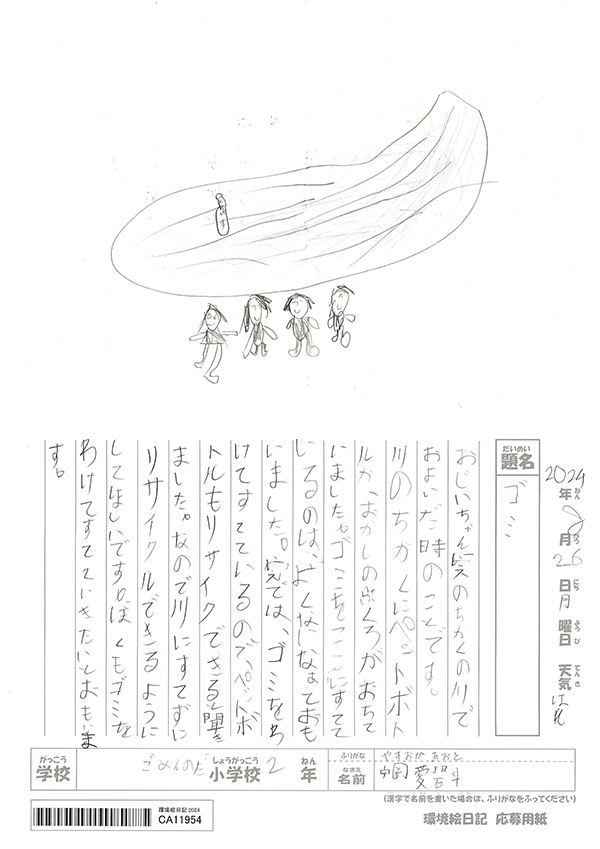 2024年8月26日月曜日 天気 はれ
ねん
がつ
にち
ようび
てんき
だいめい
題名
ゴミ
おじいちゃん家のちかくの川で
およいだ時のことです。
川のちかくにペットボト
ルか、おかしのふくろがおちて
いました。ゴミをここにすてて
いるのは、よくないなぁておも
いました。家では、ゴミをわ
けてすてているので、ペットボ
トルもリサイクできる聞き
ました。なので川にすてずに
リサイクルできるように
してほしいです。ぼくもゴミを
わけてすてていきたいとおもいま
す。
がっこう
学校
ごみんのだ
しょうがっこう
小学校
2
ねん
年
ふりがな
やすおか あおと
なまえ
名前
(漢字で名前を書いた場合は、ふりがなをふってください)
環境絵日記2024
CA11954
環境絵日記 応募用紙